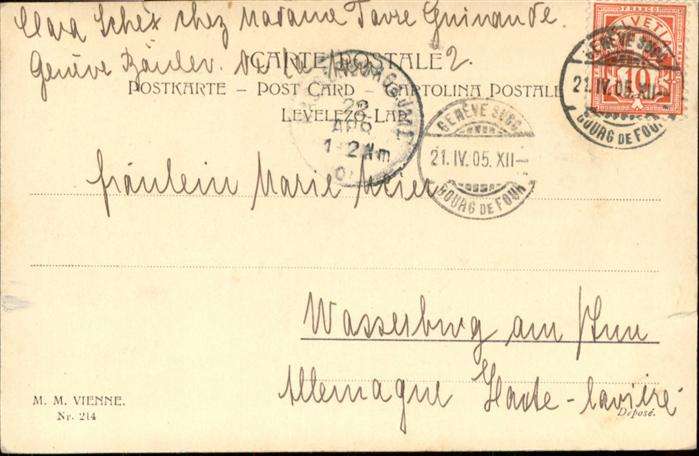 Clara Schéx chez Madame Favre Guinand de
Genève Boulev. 2.
CARTE POSTALE
POSTKARTE – POST CARD – CARTOLINA POSTALE
LEVELEZŐ-LAP
FRANCO
HELVETIA
10
GENÈVE SUCC.
21.IV.05.XII–
BOURG DE FOUR
GENÈVE SUCC.
21.IV.05.XII–
BOURG DE FOUR
22
APR
1-2 Nm
Fräulein Marie Meier
Wasserburg am Inn
Allemagne Haute-bavière
M. M. VIENNE.
Nr. 214
Déposé.